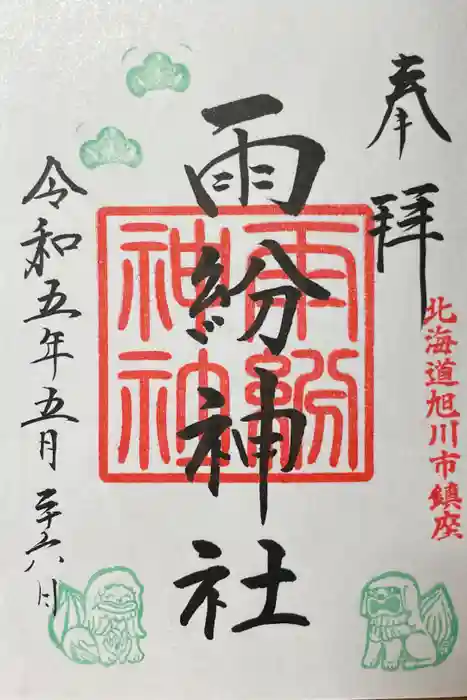 奉拝
北海道旭川市鎮座
雨紛神社
雨紛神社
令和五年五月二十六日